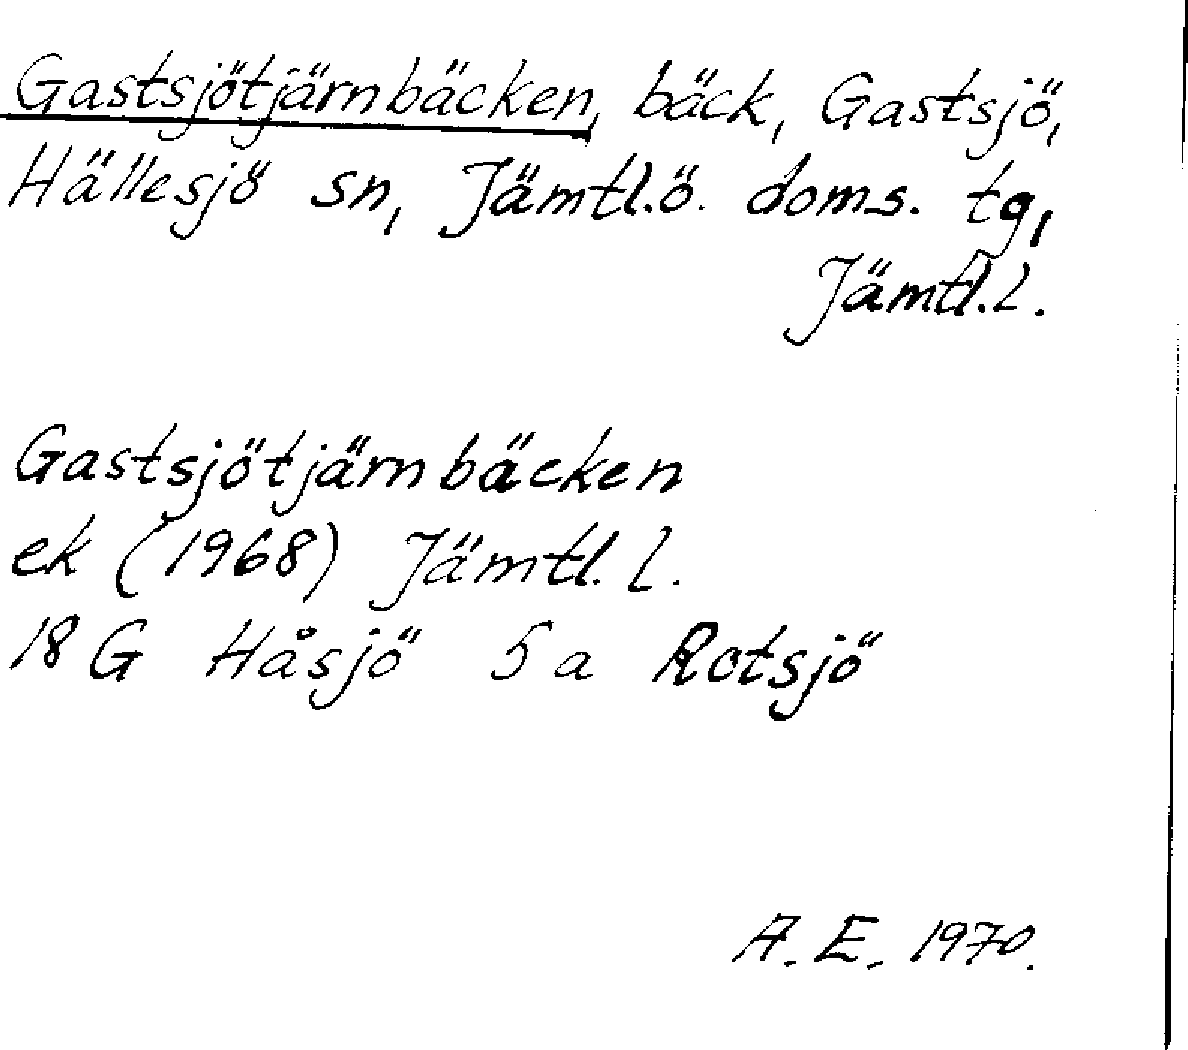 Gastsjötjärnbäcken, bäck, Gastsjö,
Hällesjö sn, Jämtl.ö. doms. tg,
Jämtl.l.
Gastsjötjärnbäcken
ek (1968) Jämtl. l.
18 G Håsjö 5 a Rotsjö
A. E. 1970.